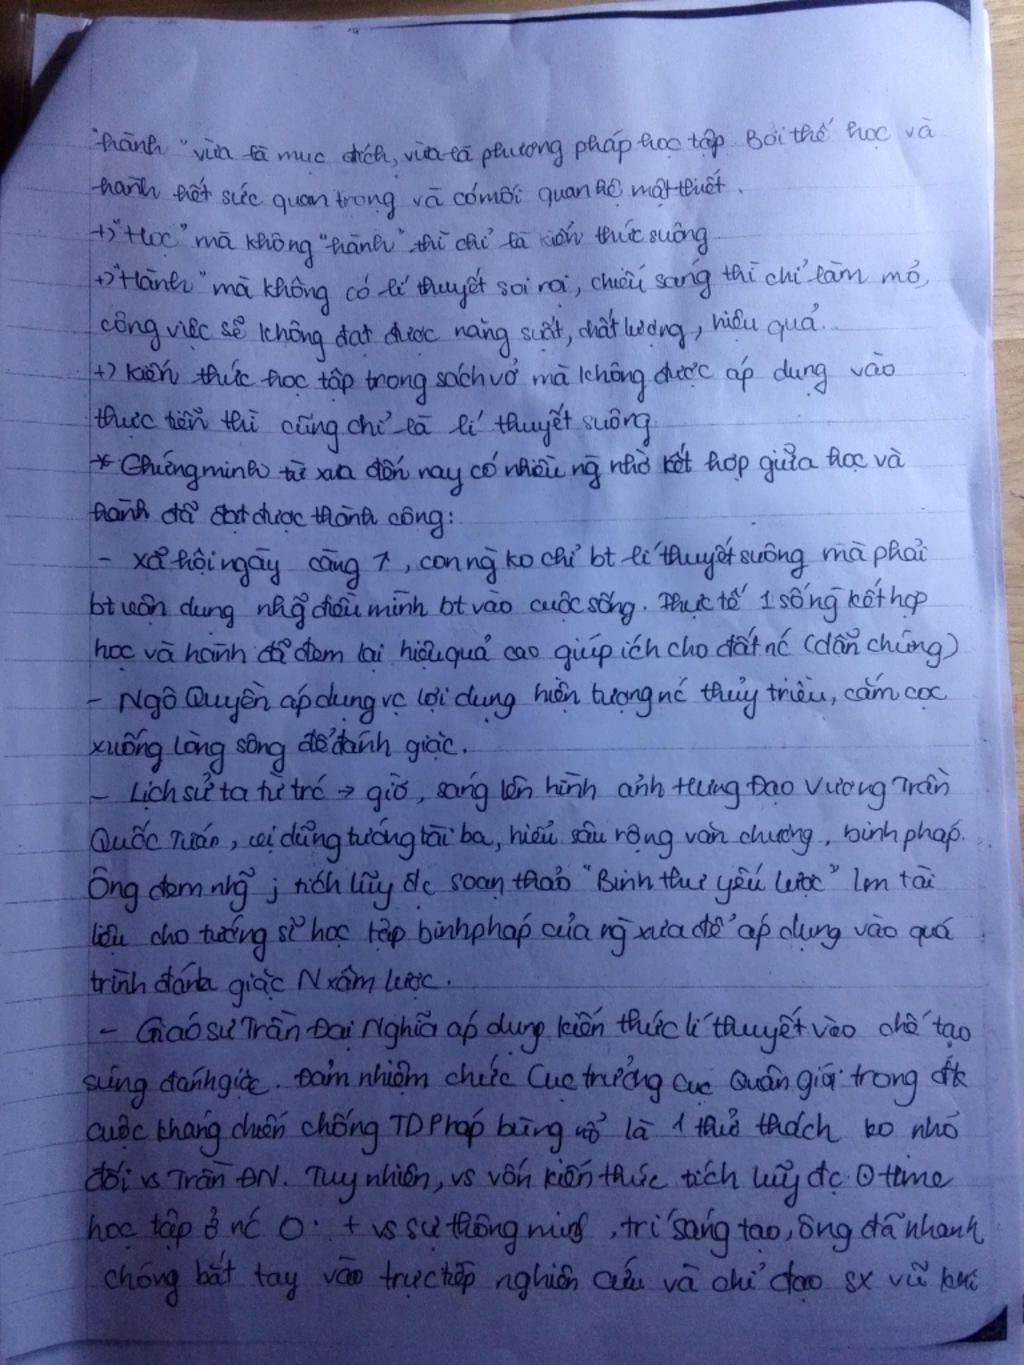 "hành" vừa là mục đích, vừa là phương pháp học tập. Bởi thế học và
hành hết sức quan trọng và có mối quan hệ mật thiết.
+) "Học" mà không "hành" thì chỉ là kiến thức suông
+) "Hành" mà không có lí thuyết soi rọi, chiếu sáng thì chỉ làm mò,
công việc sẽ không đạt được năng suất, chất lượng, hiệu quả..
+) Kiến thức học tập trong sách vở mà không được áp dụng vào
thực tiễn thì cũng chỉ là lí thuyết suông
* Chứng minh từ xưa đến nay có nhiều ng̀ nhờ kết hợp giữa học và
hành để đạt được thành công:
- Xã hội ngày càng ↑, con ng̀ ko chỉ bt lí thuyết suông mà phải
bt vận dụng nhg̃ điều mình bt vào cuộc sống. Thực tế 1 số ng̀ kết hợp
học và hành đã đem lại hiệu quả cao giúp ích cho đất nć (dẫn chứng)
- Ngô Quyền áp dụng vc lợi dụng hiện tượng nć thủy triều, cắm cọc
xuống lòng sông để đánh giặc.
- Lịch sử ta từ trć → giờ, sáng lên hình ảnh Hưng Đạo Vương Trần
Quốc Tuấn, vị dũng tướng tài ba, hiểu sâu rộng văn chương, binh pháp.
Ông đem nhg̃ j tích lũy đc soạn thảo "Binh thư yếu lược" lm tài
liệu cho tướng sĩ học tập binh pháp của ng̀ xưa để áp dụng vào quá
trình đánh giặc N xâm lược.
- Giáo sư Trần Đại Nghĩa áp dụng kiến thức lí thuyết vào chế tạo
súng đánh giặc. Đảm nhiệm chức Cục trưởng Cục Quân giới trong đk
cuộc kháng chiến chống TD Pháp bùng nổ là 1 thử thách ko nhỏ
đối vs Trần ĐN. Tuy nhiên, vs vốn kiến thức tích lũy đc ⊙ time
học tập ở nć O. + vs sự thông minh, trí sáng tạo, ông đã nhanh
chóng bắt tay vào trực tiếp nghiên cứu và chỉ đạo sx vũ khí